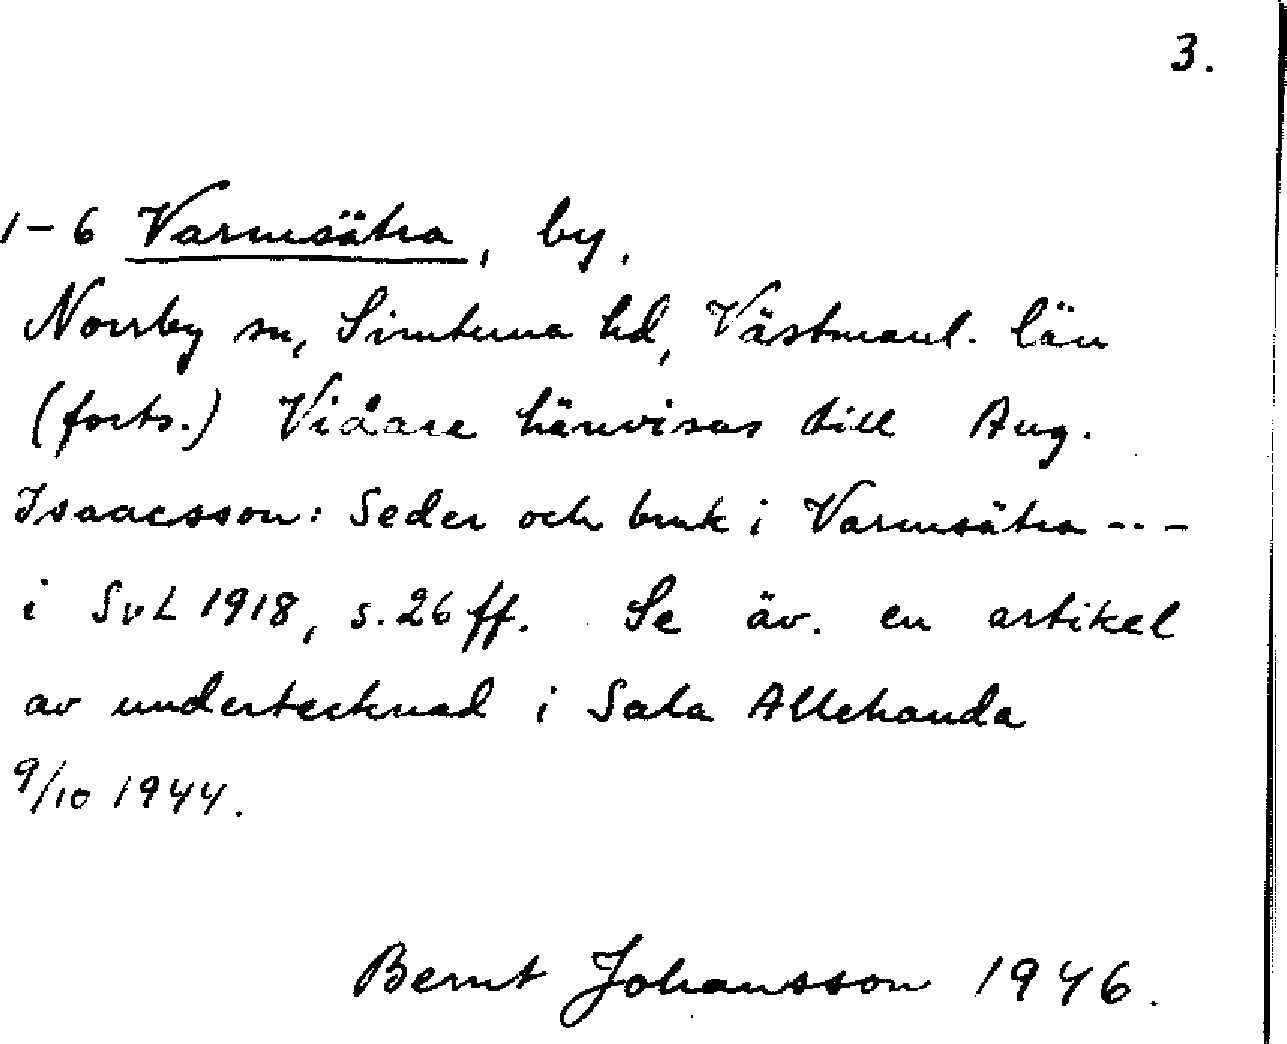 3.
1-6 Varmsätra, by,
Norrby sn, Simtuna hd, Västmanl. län
(forts.) Vidare hänvisas till Aug.
Isaacsson: Seder och bruk i Varmsätra ---
i SvL 1918, s. 26 ff. Se äv. en artikel
av undertecknad i Sala Allehanda
9/10 1944.
Bernt Johansson 1946.